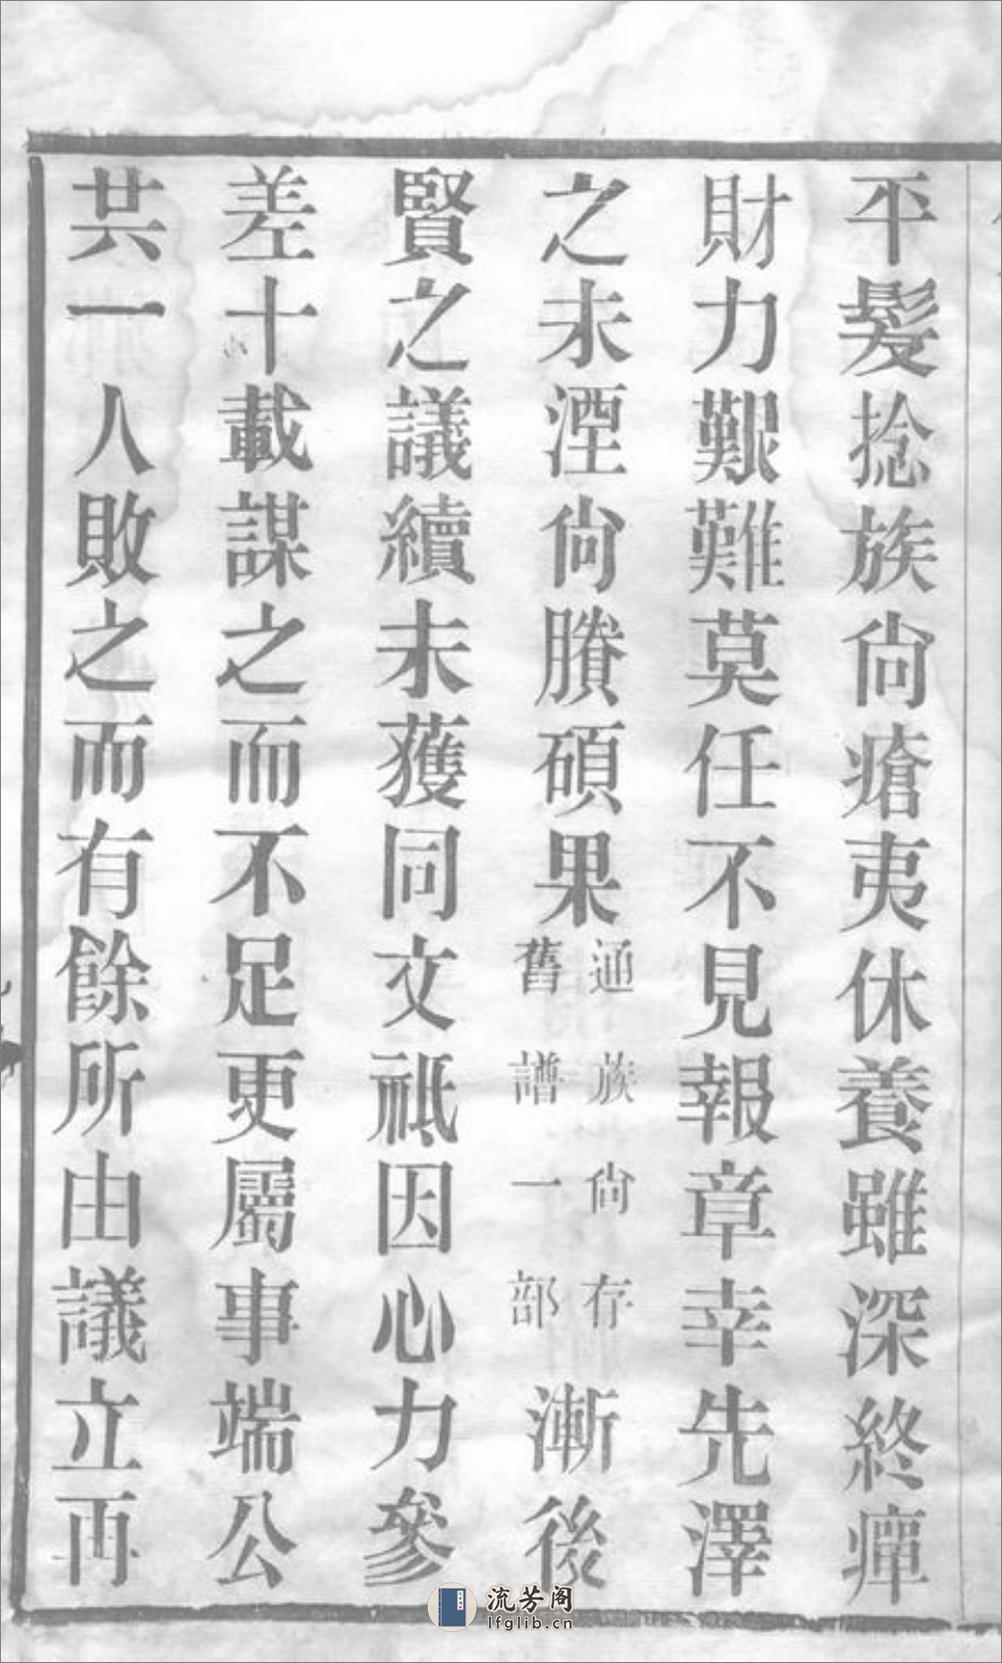 平髮捻族尙瘡夷休養雖深終瘅
財力艱難莫任不見報章幸先澤
之未湮尙賸碩果通族尙存舊譜一部漸後
賢之議續未獲同文祗因心力參
差十載謀之而不足更屬事端公
共一人敗之而有餘所由議立再
流芳阁
lfglib.cn